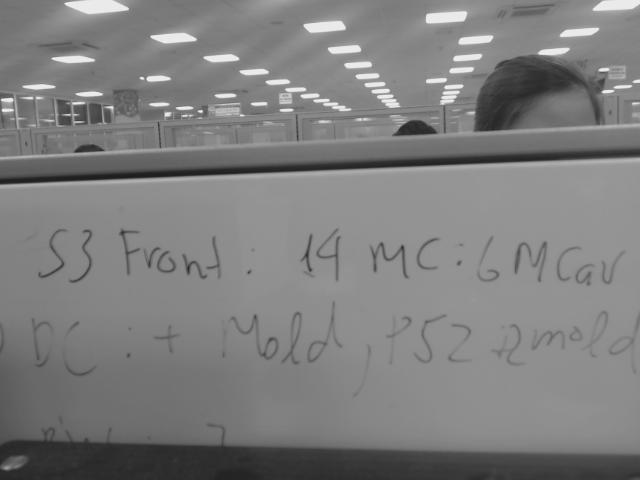 S3 Front : 14 MC : 6 MCav
DC : + Mold, P52 : 2mold